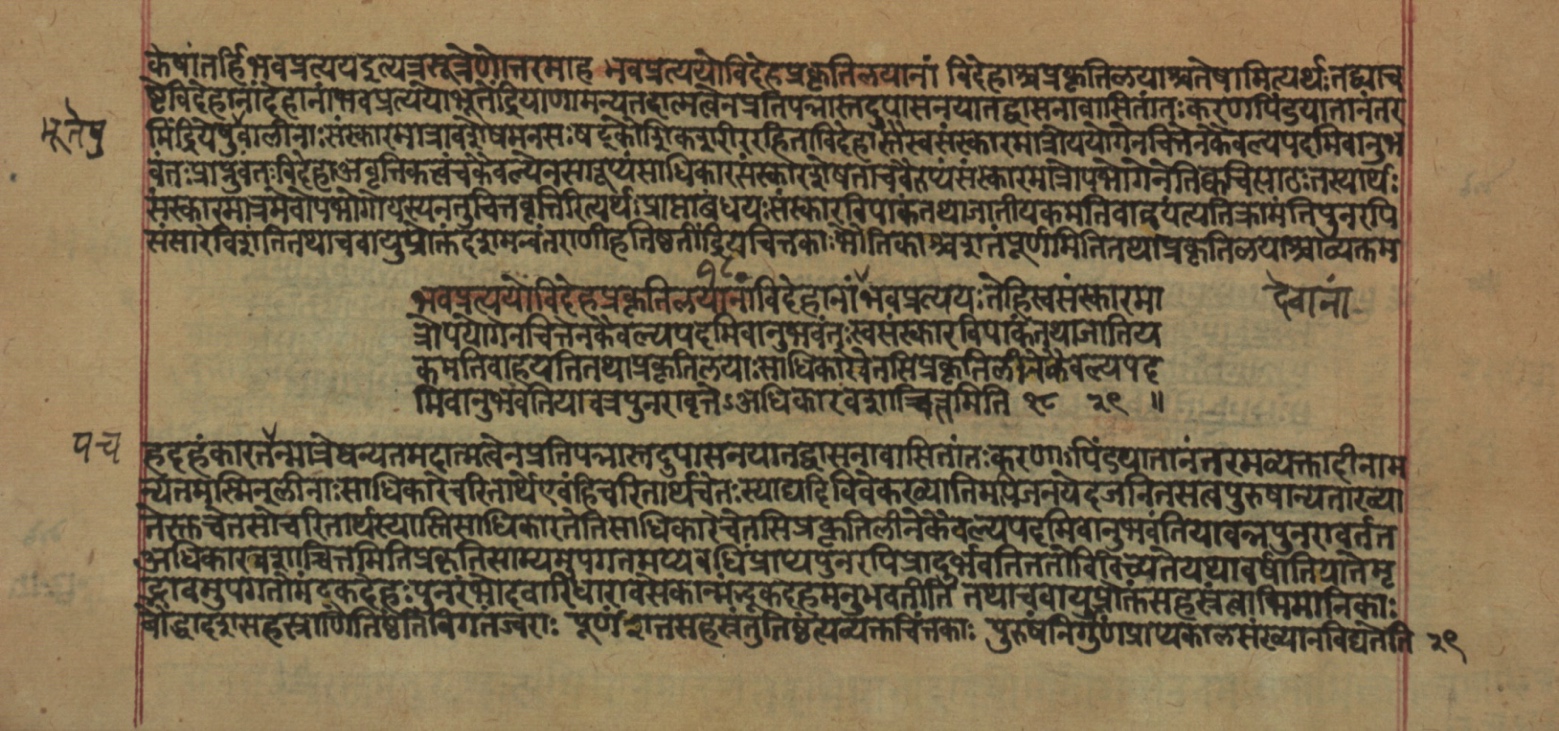 केषां तर्हि भवप्रत्यय इत्यत्र सूत्रेणोत्तरमाह भवप्रत्ययो विदेहप्रकृतिलयानां विदेहाश्च प्रकृतिलयाश्च तेषामित्यर्थः तद्व्याच
ष्टे विदेहानां देहानां भवप्रत्ययो भूतेंद्रियाणामन्यतमदात्मत्वेन प्रतिपन्नास्तदुपासनया तद्वासनावासितांतःकरणाः पिंडपातानंतर
भूतेषु
मिंद्रियेषु वा लीनाः संस्कारमात्रावशेषमनसः षट्कौशिकशरीररहिता विदेहास्ते स्वसंस्कारमात्रोपयोगेन चित्तेन कैवल्यपदमिवानुभ
वंतः प्राप्नुवंतः विदेहाः अवृत्तिकत्वं च कैवल्येन सारूप्यं साधिकारसंस्कारशेषता च वैरूप्यं संस्कारमात्रोपभोगेनेति क्वचित्पाठः तस्यार्थः
संस्कारमात्रमेवोपभोगो यस्य न तु चित्तवृत्तिरित्यर्थः प्राप्तावधयः संस्कारविपाकं तथाजातीयकमतिवाहयंत्यतिक्रामंति पुनरपि
संसारे विशंति तथा च वायुप्रोक्तं दशमन्वंतराणीह तिष्ठंतींद्रियचिंतकाः भौतिकाश्च शतं पूर्णमिति तथा प्रकृतिलयाश्चाव्यक्तम
१८
भवप्रत्ययो विदेहप्रकृतिलयानां विदेहानां भवप्रत्ययः ते हि स्वसंस्कारमा
देवानां
त्रोपयोगेन चित्तेन कैवल्यपदमिवानुभवंतः स्वसंस्कारविपाकं तथाजातिय
कमतिवाहयंति तथा प्रकृतिलयाः साधिकारे चेतसि प्रकृतिलीने कैवल्यपद
मिवानुभवंति यावन्न पुनरावर्त्तते ऽअधिकारवशाच्चित्तमिति १८ २९ ॥
पंच
हदहंकारतन्मात्रेष्वन्यतमदात्मत्वेन प्रतिपन्नास्तदुपासनया तद्वासनावासितांतःकरणाः पिंडपातानंतरमव्यक्तादीनाम
न्यतमस्मिन् लीनाः साधिकारे चरितार्थे एवं हि चरितार्थं चेतः स्याद्यदि विवेकख्यातिमपि जनयेदजनितसत्वपुरुषान्यताख्या
तेस्तु चेतसोचरितार्थस्यास्ति साधिकारतेति साधिकारे चेतसि प्रकृतिलीने कैवल्यपदमिवानुभवंति यावन्न पुनरावर्तते
अधिकारवशाच्चित्तमिति प्रकृतिसाम्यमुपगतमप्यवधिं प्राप्य पुनरपि प्रादुर्भवति ततो विविच्यते यथा वर्षातिपाते मृ
द्भावमुपगतो मंडूकदेहः पुनरंभोदवारिधारावसेकान्मंडूकदेहमनुभवतीति तथा च वायुप्रोक्तं सहस्रं त्वाभिमानिकाः
बौद्धा दशसहस्राणि तिष्ठंति विगतज्वराः पूर्णं शतसहस्रं तु तिष्ठंत्यव्यक्तचिंतकाः पुरुषं निर्गुणं प्राप्य कालसंख्या न विद्यत इति २९